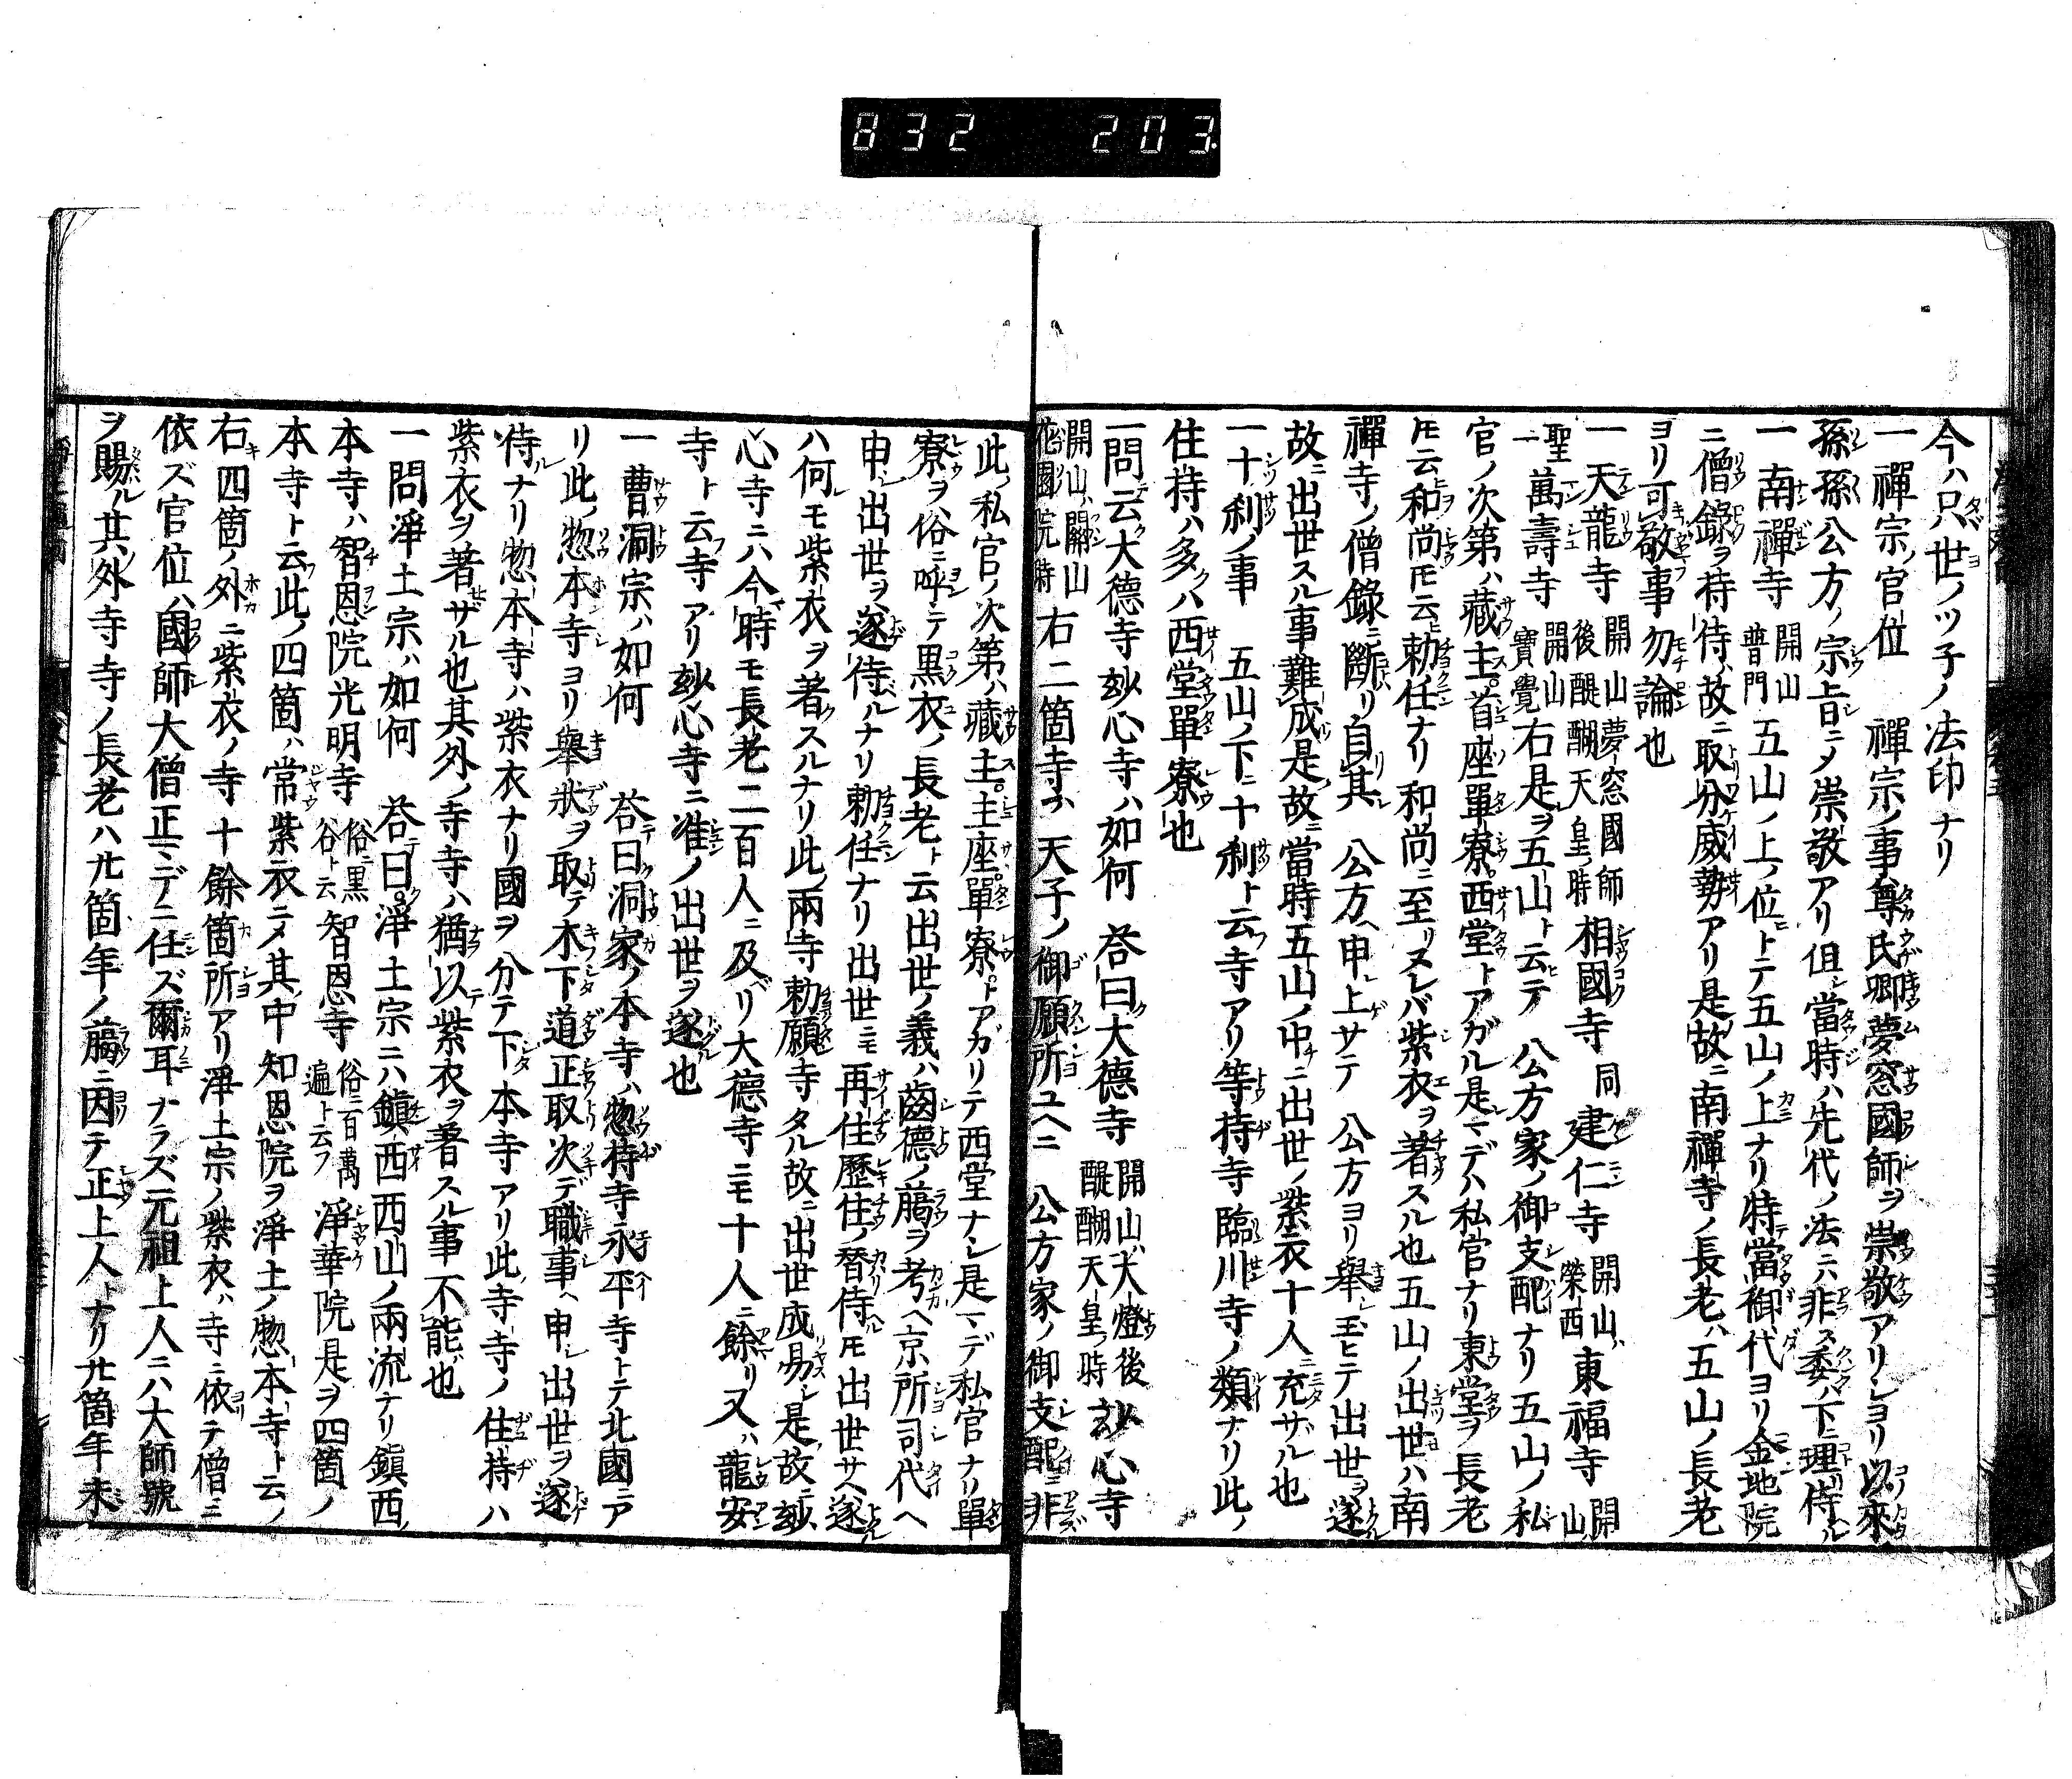 832 203
今ハ只世ノツ子ノ法印ナリ
一禪宗ノ官位 禪宗ノ事ハ尊氏卿夢窓國師ヲ崇敬アリシヨリ以來
孫孫公方ノ宗旨ニメ崇敬アリ但シ當時ハ先代ノ法ニハ非ス委ハ下ニ理リ侍ル
一南禪寺 開山普門 五山ノ上ノ位トテ五山ノ上ナリ特ニ當御代ヨリ金地院
ニ僧錄ヲ持侍ル故ニ取分威勢アリ是故ニ南禪寺ノ長老ハ五山ノ長老
ヨリ可敬事勿論也
一天龍寺 開山夢窓國師後醍醐天皇ノ時 相國寺 同 建仁寺 開山ハ榮西 東福寺 開山ハ
聖一 萬壽寺 開山寶覺 右是ヲ五山ト云テ 公方家ノ御支配ナリ五山ノ私
官ノ次第ハ藏主。首座單寮。西堂トアガル是マデハ私官ナリ東堂ヲ長老
モ云ヒ和尚モ云ヒ勅任ナリ和尚ニ至リヌレバ紫衣ヲ著スル也五山ノ出世ハ南
禪寺ノ僧錄ニ斷リ自其 公方ヘ申上サテ 公方ヨリ舉シ玉ヒテ出世ヲ遂ル
故ニ出世スル事難成是故ニ當時五山ノ中ニ出世ノ紫衣十人ニ充サル也
一十刹ノ事 五山ノ下ニ十刹ト云フ寺アリ等持寺臨川寺ノ類ナリ此ノ
住持ハ多クハ西堂單寮也
一問云ク大德寺玅心寺ハ如何 答曰ク大德寺 開山ハ大燈後醍醐天皇ノ時 玅心寺
開山ハ關山花園院ノ時 右二箇寺ハ 天子ノ御願所ユヘニ 公方家ノ御支配ニ非
此ノ私官ノ次第ハ藏主。主座。單寮。トアガリテ西堂ナシ是マデ私官ナリ單
寮ヲハ俗ニ呼テ黒衣ノ長老ト云出世ノ義ハ齒德ノ﨟ヲ考ヘ京所司代ヘ
申シ出世ヲ遂侍ルナリ勅任ナリ出世ニモ再住歷住ノ替侍ルモ出世サヘ遂
ハ何レモ紫衣ヲ著スルナリ此ノ兩寺勅願寺タル故ニ出世成易シ是ノ故ニ玅
心寺ニハ今時モ長老二百人ニ及ベリ大德寺ニモ十人ニ餘リ又ハ龍安
寺ト云フ寺アリ玅心寺ニ准ノ出世ヲ遂也
一曹洞宗ハ如何 答曰洞家ノ本寺ハ惣持寺永平寺トテ北國ニア
リ此ノ惣本寺ヨリ舉狀ヲ取テ木下道正取次デ職事ヘ申シ出世ヲ遂
侍ルナリ惣本寺ハ紫衣ナリ國ヲ分テ下本寺アリ此ノ寺寺ノ住持ハ
紫衣ヲ著ザル也其外ノ寺寺ハ猶以テ紫衣ヲ著スル事不能也
一問淨土宗ハ如何 答曰ク。淨土宗ニハ鎭西西山ノ兩流ナリ鎭西ノ
本寺ハ智恩院光明寺 俗ニ黒谷ト云 智恩寺 俗ニ百萬遍ト云フ 淨華院是ヲ四箇ノ
本寺ト云フ此ノ四箇ハ常紫衣ニメ其ノ中知恩院ヲ淨土ノ惣本寺ト云ノ
右四箇ノ外ニ紫衣ノ寺十餘箇所アリ淨土宗ノ紫衣ハ寺ニ依テ僧ニ
依ズ官位ハ國師大僧正マデニ任ズ爾耳ナラズ元祖上人ニハ大師號
ヲ賜ル其外寺寺ノ長老ハ廿箇年ノ﨟ニ因テ正上人トナリ廿箇年未